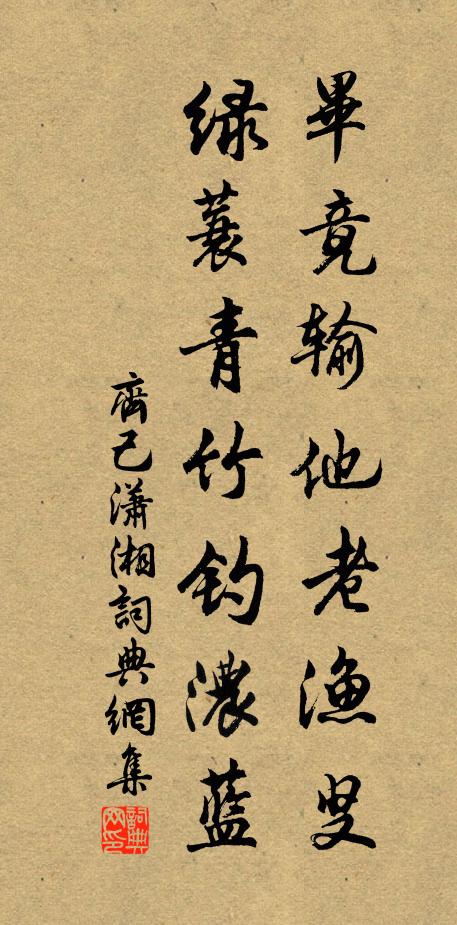 畢竟输他老渔叟
绿蓑青竹钓濃藍
齊己瀟湘詞典網集
詞典网印